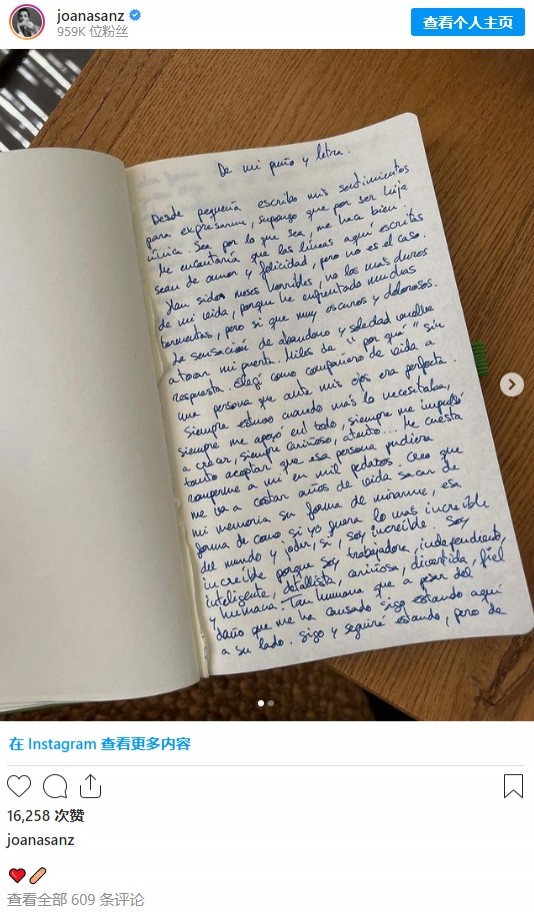 joanasanz
959K 位粉丝
查看个人主页
De mi puño y letra.
Desde pequeña escribo mis sentimientos
para expresarme, supongo que por ser hija
única. Sea por lo que sea, me hace bien.
Me encantaría que las líneas aquí escritas
sean de amor y felicidad, pero no es el caso.
Han sido meses horribles, no los más duros
de mi vida, porque he enfrentado muchas
tormentas, pero si que muy oscuros y dolorosos.
La sensación de abandono y soledad vuelve
a tocar mi puerta. Miles de "por qué" sin
respuesta. Elegí como compañero de vida a
una persona que ante mis ojos era perfecta.
Siempre estuvo cuando más lo necesitaba,
siempre me apoyó en todo, siempre me impulsó
a crear, siempre cariñoso, atento... Me cuesta
tanto aceptar que esa persona pudiera
romperme a mi en mil pedazos. Creo que
me va a costar años de vida sacar de
mi memoria su forma de mirarme, esa
forma de como si yo fuera lo más increíble
del mundo y joder, si, soy increíble. Soy
increíble porque soy trabajadora, independiente,
inteligente, detallista, cariñosa, divertida, fiel
y humana. Tan humana que a pesar del
daño que me ha causado sigo estando aquí
a su lado. Sigo y seguiré estando, pero de
在 Instagram 查看更多内容
16,258 次赞
joanasanz
查看全部 609 条评论